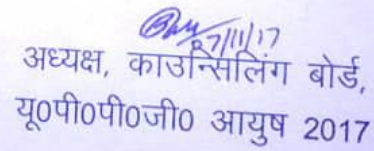 7/11/17
अध्यक्ष, काउन्सिलिंग बोर्ड,
यू0पी0पी0जी0 आयुष 2017